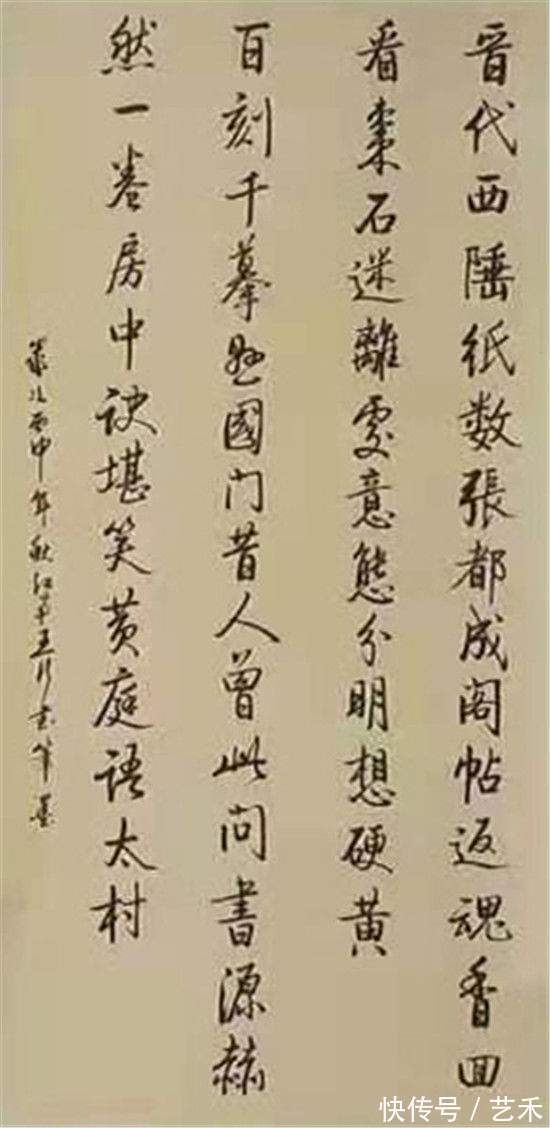 晉代西陲纸数張都成阁帖返魂香回
看棗石迷離處意態分明想硬黄
百刻千摹懸國门昔人曾此问書源赫
然一卷房中訣堪笑黄庭语太村
丙申年秋
快传号/艺禾